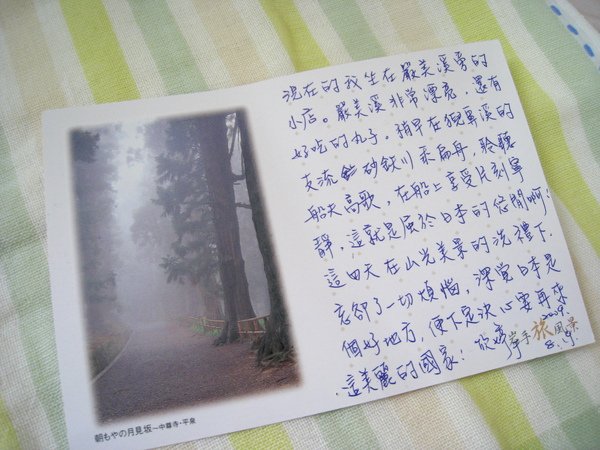 現在的我坐在嚴美溪旁的
小店。嚴美溪非常漂亮，還有
好吃的丸子。稍早在猊鼻溪的
支流砂鉄川乘扁舟，聆聽
船夫高歌，在船上享受片刻寧
靜，這就是屬於日本的悠閒啊！
這四天在山光美景的洗禮下，
忘卻了一切煩惱，深覺日本是
個好地方，便下定決心要再來
這美麗的國家！
2009.
8.9.
旅風景
朝もやの月見坂～中尊寺・平泉